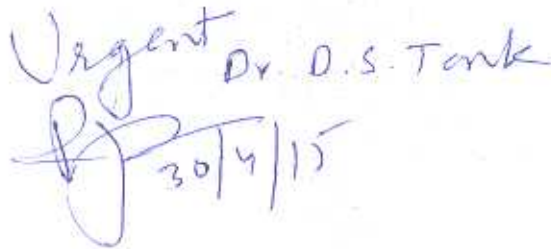 Urgent Dr. D.S. Tank
30/4/15